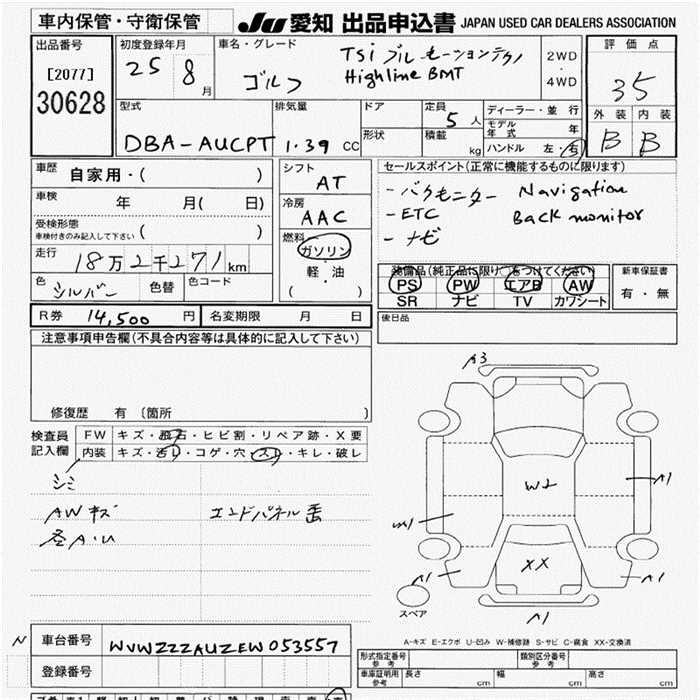 車内保管・守衛保管
JU 愛知 出品申込書 JAPAN USED CAR DEALERS ASSOCIATION
出品番号
[2077]
30628
初度登録年月
25 8 月
車名・グレード
TSi ブルーモーションテクノ
ゴルフ Highline BMT
2WD
・
4WD
評価点
3.5
外装 内装
B B
型式
DBA-AUCPT
排気量
1.39 CC
ドア
形状
定員
5人
積載
kg
ディーラー・並行
モデル年式 年
ハンドル 左・右
車歴
自家用・( )
車検
年 月( 日)
受検形態
車検付きのみ記入して下さい ( )
走行
18万2千271km
色
シルバー
色替
色コード
シフト
AT
冷房
AAC
燃料
ガソリン
・
軽・油
( )
セールスポイント(正常に機能するものに限ります)
- バックモニター Navigation
- ETC Back monitor
- ナビ
装備品(純正品に限り○をつけてください)
PS PW エアB AW
SR ナビ TV カワシート
新車保証書
有・無
R券 14,500 円
名変期限 月 日
後日品
注意事項申告欄(不具合内容等は具体的に記入して下さい)
修復歴 有 〔箇所 〕
検査員
記入欄
FW キズ・飛石・ヒビ割・リペア跡・X要
内装 キズ・汚れ・コゲ・穴・スレ・キレ・破レ
シミ
AWキズ エンドパネル歪
A3
W2
A1
A1
XX
A1
A1
A1
スペア
A-キズ E-エクボ U-凹み W-補修跡 S-サビ C-腐食 XX-交換済
N
車台番号 WVWZZZAUZEW053557
登録番号
形式指定番号
参考
類別区分番号
参考
車庫証明用
参考
長さ cm 幅 cm 高さ cm